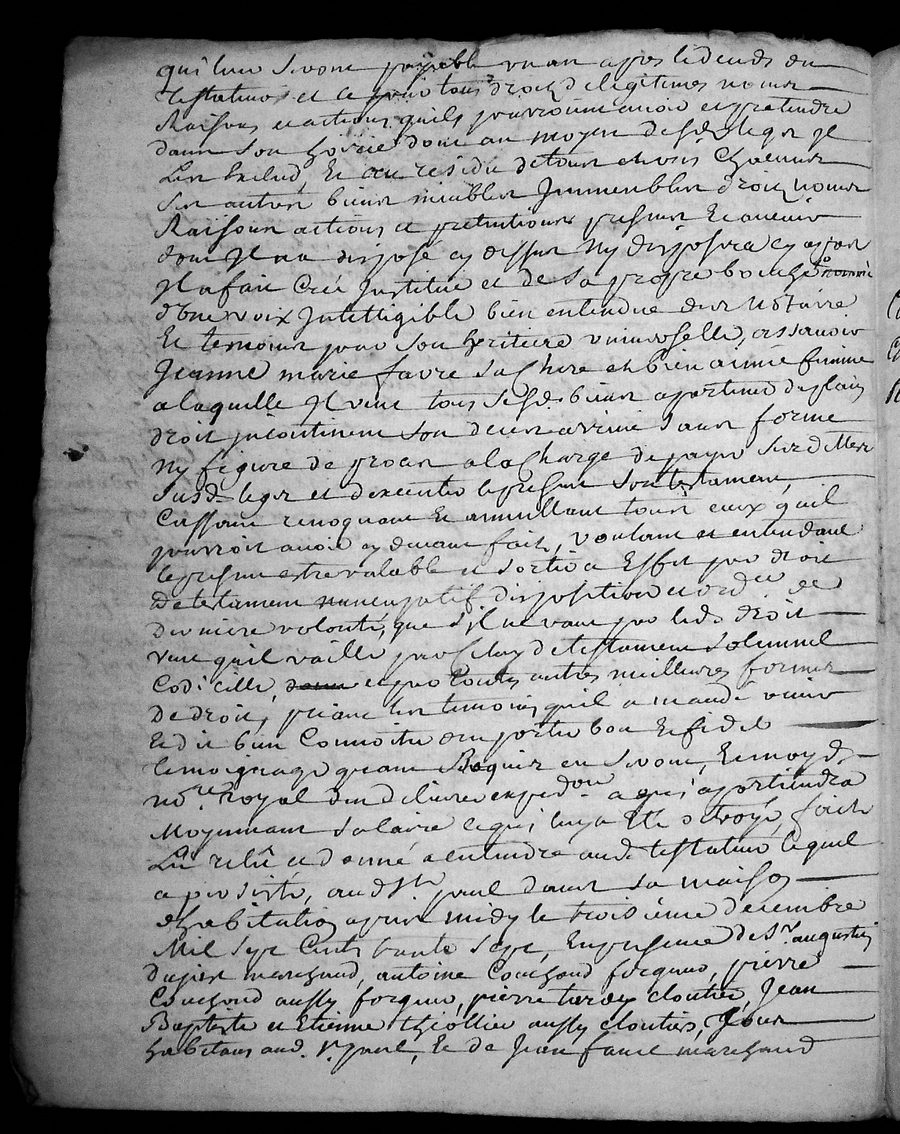 qui leur seront payable un an apres le deceds du
testateur et ce pour tous droits de legitimes noms
Raisons et actions quils pourroient avoir et pretendre
dans son hoirie dont au moyen desd. legs il
Les Exclud, Et au residu de tous et uns chacuns
ses autres biens meubles Jmmeubles droits noms
Raisons actions et pretentions presents Et avenir
dont Jl na disposé cy dessus Ny disposera cy apres
Jl a fait Créé Jnstitué et de sa propre bouche nommé
d'une voix Jntelligible bien entendue des Notaire
Et temoins pour son heritiere universelle, assavoir
Jeanne marie favre sa chere et bien aimée femme
a laquelle Jl veut tous sesd. biens apartenir de plain
droit incontinent son deces arrivé sans forme
Ny figure de proces a la charge de payer ses dettes
susd. legs et dexecuter le present son testament,
Cassant revoquant Et annullant tous ceux qu'il
pourroit avoir cy devant fait, voulant et entendant
le present estre valable et sortir a Effet par droit
de testament nuncupatif disposition et ord.ce de
derniere volonté, que s'il ne vaut par led. droit
veut quil vaille par celuy de testament solemnel
Codicille, et par toutes autres meilleures formes
De droit, priant les temoins quil a mandé venir
Et dit bien Connoitre den porter bon Et fidel
temoignage quant Requis en seront, Et moy d.
no.re royal den delivrer expedon a qui apartiendra
Moyennant salaire ce qui luy a Eté octroyé, fait
Lû relû et donné a entendre aud. testateur lequel
a persisté, aud. St paul dans sa maison
d'habitation apres midy le troisieme decembre
Mil sept Cents trante sept, En presence de Sr. augustin
marchand, antoine Couchoud forgeur, pierre
Couchoud aussy forgeur, pierre tardy cloutier, Jean
Baptiste et Etienne thiollier aussy cloutiers, tous
habitans aud. St. paul, Et de Jean faure marchand